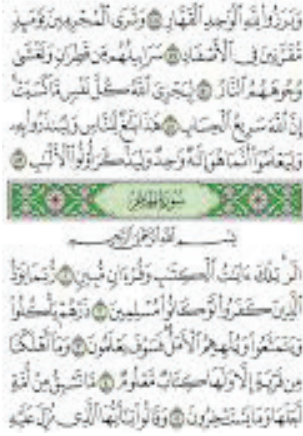 وَبَرَزُوا۟ لِلَّهِ ٱلْوَٰحِدِ ٱلْقَهَّارِ ۝ وَتَرَى ٱلْمُجْرِمِينَ يَوْمَئِذٍ
مُّقَرَّنِينَ فِى ٱلْأَصْفَادِ ۝ سَرَابِيلُهُم مِّن قَطِرَانٍ وَتَغْشَىٰ
وُجُوهَهُمُ ٱلنَّارُ ۝ لِيَجْزِىَ ٱللَّهُ كُلَّ نَفْسٍ مَّا كَسَبَتْ
إِنَّ ٱللَّهَ سَرِيعُ ٱلْحِسَابِ ۝ هَٰذَا بَلَٰغٌ لِّلنَّاسِ وَلِيُنذَرُوا۟ بِهِۦ
وَلِيَعْلَمُوٓا۟ أَنَّمَا هُوَ إِلَٰهٌ وَٰحِدٌ وَلِيَذَّكَّرَ أُو۟لُوا۟ ٱلْأَلْبَٰبِ ۝
سُورَةُ الحِجْرِ
بِسْمِ ٱللَّهِ ٱلرَّحْمَٰنِ ٱلرَّحِيمِ
الٓر تِلْكَ ءَايَٰتُ ٱلْكِتَٰبِ وَقُرْءَانٍ مُّبِينٍ ۝ رُّبَمَا يَوَدُّ
ٱلَّذِينَ كَفَرُوا۟ لَوْ كَانُوا۟ مُسْلِمِينَ ۝ ذَرْهُمْ يَأْكُلُوا۟
وَيَتَمَتَّعُوا۟ وَيُلْهِهِمُ ٱلْأَمَلُ فَسَوْفَ يَعْلَمُونَ ۝ وَمَآ أَهْلَكْنَا
مِن قَرْيَةٍ إِلَّا وَلَهَا كِتَابٌ مَّعْلُومٌ ۝ مَّا تَسْبِقُ مِنْ أُمَّةٍ
أَجَلَهَا وَمَا يَسْتَـْٔخِرُونَ ۝ وَقَالُوا۟ يَٰٓأَيُّهَا ٱلَّذِى نُزِّلَ عَلَيْهِ